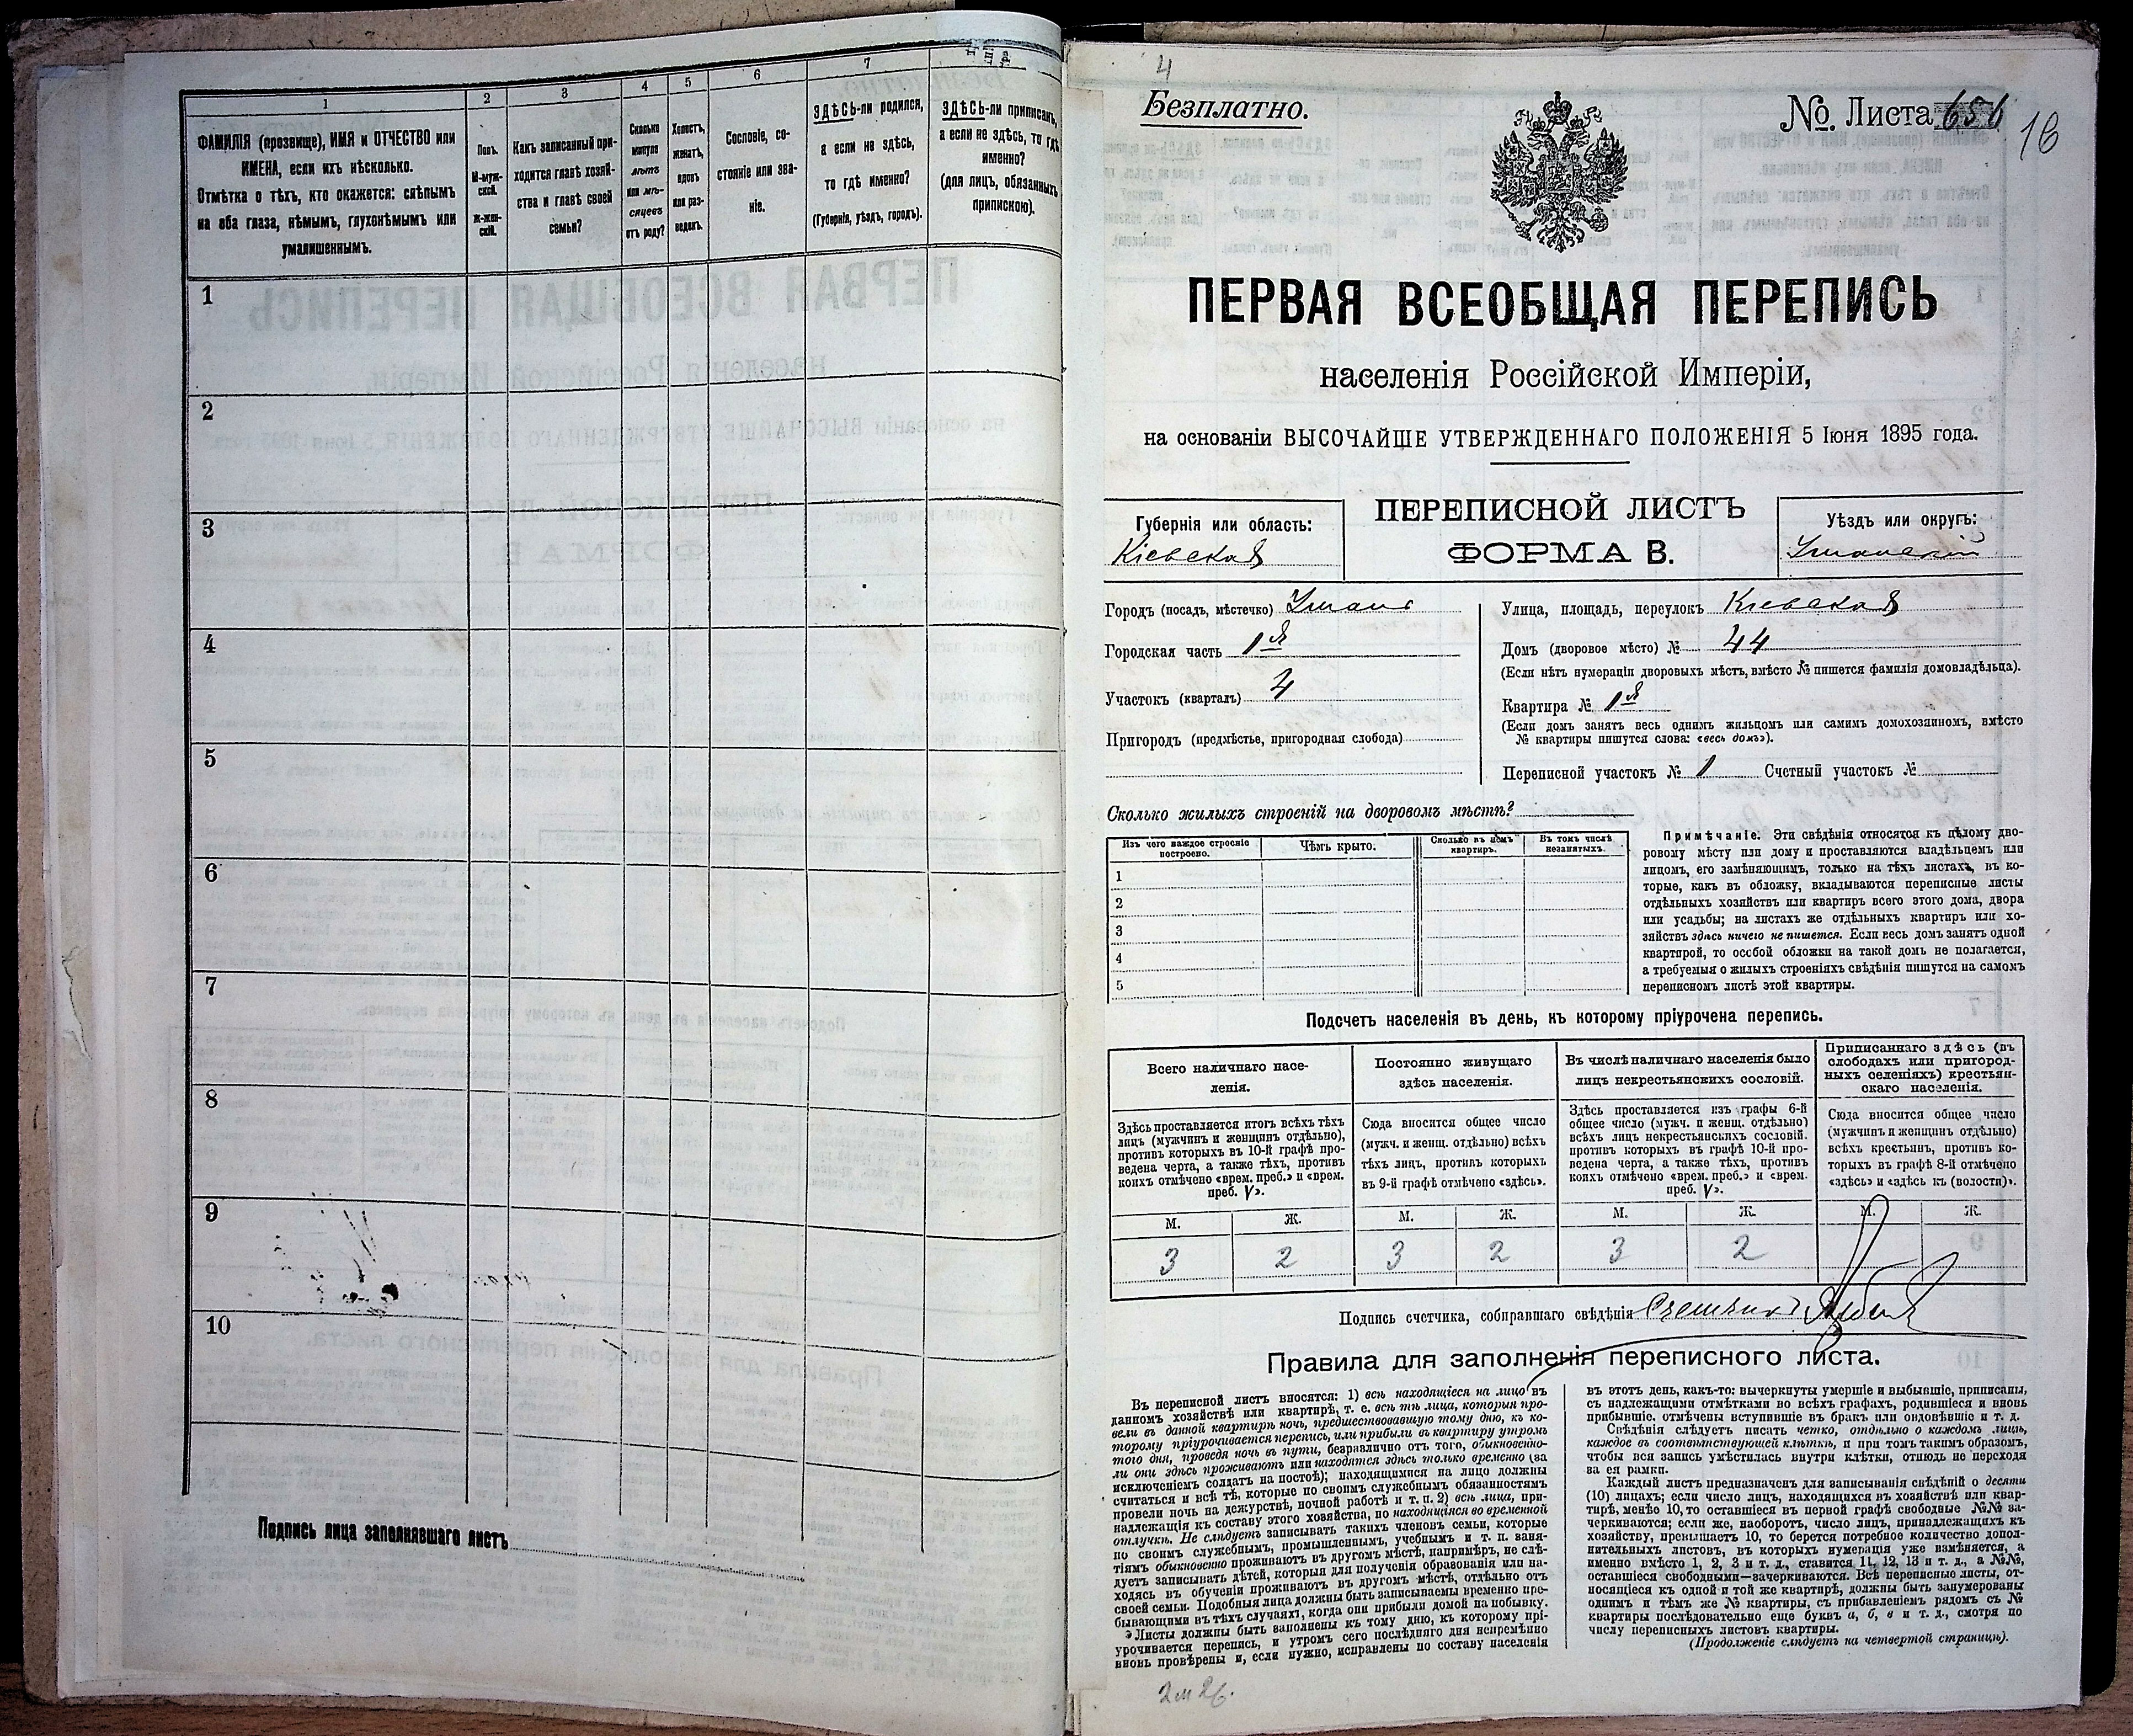 1
2
3
4
5
6
7
ФАМИЛІЯ (прозвище), ИМЯ и ОТЧЕСТВО или
ИМЕНА, если ихъ нѣсколько.
Отмѣтка о тѣхъ, кто окажется: слѣпымъ
на оба глаза, нѣмымъ, глухонѣмымъ или
умалишеннымъ.
Полъ.
М-муж-
ской.
Ж-жен-
скій.
Какъ записанный при-
ходится главѣ хозяй-
ства и главѣ своей
семьи?
Сколько
минуло
лѣтъ
или мѣ-
сяцевъ
отъ роду?
Холостъ,
женатъ,
вдовъ
или раз-
веденъ.
Сословіе, со-
стояніе или зва-
ніе.
ЗДѢСЬ-ли родился,
а если не здѣсь,
то гдѣ именно?
(Губернія, уѣздъ, городъ).
ЗДѢСЬ-ли приписанъ,
а если не здѣсь, то гдѣ
именно?
(для лицъ, обязанныхъ
припискою).
1
2
3
4
5
6
7
8
9
10
Подпись лица заполнявшаго листъ
4
Безплатно.
№. Листа 656
18
ПЕРВАЯ ВСЕОБЩАЯ ПЕРЕПИСЬ
населенія Россійской Имперіи,
на основаніи ВЫСОЧАЙШЕ УТВЕРЖДЕННАГО ПОЛОЖЕНІЯ 5 Іюня 1895 года.
Губернія или область:
Кіевская
ПЕРЕПИСНОЙ ЛИСТЪ
ФОРМА В.
Уѣздъ или округъ:
Уманскій
Городъ (посадъ, мѣстечко) Умань
Городская часть 1я
Участокъ (кварталъ) 4
Пригородъ (предмѣстье, пригородная слобода)
Улица, площадь, переулокъ Кіевская
Домъ (дворовое мѣсто) № 44
(Если нѣтъ нумераціи дворовыхъ мѣстъ, вмѣсто № пишется фамилія домовладѣльца).
Квартира № 1я
(Если домъ занятъ весь однимъ жильцомъ или самимъ домохозяиномъ, вмѣсто
№ квартиры пишутся слова: «весь домъ»).
Переписной участокъ № 1 Счетный участокъ №
Сколько жилыхъ строеній на дворовомъ мѣстѣ?
Изъ чего каждое строеніе
построено.
Чѣмъ крыто.
Сколько въ немъ
квартиръ.
Въ томъ числѣ
незанятыхъ.
1
2
3
4
5
Примѣчаніе. Эти свѣдѣнія относятся къ цѣлому дво-
ровому мѣсту или дому и проставляются владѣльцемъ или
лицомъ, его замѣняющимъ, только на тѣхъ листахъ, въ ко-
торые, какъ въ обложку, вкладываются переписные листы
отдѣльныхъ хозяйствъ или квартиръ всего этого дома, двора
или усадьбы; на листахъ же отдѣльныхъ квартиръ или хо-
зяйствъ здѣсь ничего не пишется. Если весь домъ занятъ одной
квартирой, то особой обложки на такой домъ не полагается,
а требуемыя о жилыхъ строеніяхъ свѣдѣнія пишутся на самомъ
переписномъ листѣ этой квартиры.
Подсчетъ населенія въ день, къ которому пріурочена перепись.
Всего наличнаго насе-
ленія.
Здѣсь проставляется итогъ всѣхъ тѣхъ
лицъ (мужчинъ и женщинъ отдѣльно),
противъ которыхъ въ 10-й графѣ про-
ведена черта, а также тѣхъ, противъ
коихъ отмѣчено «врем. преб.» и «врем.
преб. V».
Постоянно живущаго
здѣсь населенія.
Сюда вносится общее число
(мужч. и женщ. отдѣльно) всѣхъ
тѣхъ лицъ, противъ которыхъ
въ 9-й графѣ отмѣчено «здѣсь».
Въ числѣ наличнаго населенія было
лицъ некрестьянскихъ сословій.
Здѣсь проставляется изъ графы 6-й
общее число (мужч. и женщ. отдѣльно)
всѣхъ лицъ некрестьянскихъ сословій.
противъ которыхъ въ графѣ 10-й про-
ведена черта, а также тѣхъ, противъ
коихъ отмѣчено «врем. преб.» и «врем.
преб. V».
Приписаннаго здѣсь (въ
слободахъ или пригород-
ныхъ селеніяхъ) крестьян-
скаго населенія.
Сюда вносится общее число
(мужчинъ и женщинъ отдѣльно)
всѣхъ крестьянъ, противъ ко-
торыхъ въ графѣ 8-й отмѣчено
«здѣсь» и «здѣсь къ (волости)».
М. Ж. М. Ж. М. Ж. М. Ж.
3 2 3 2 3 2
Подпись счетчика, собиравшаго свѣдѣнія Счетчикъ
Правила для заполненія переписного листа.
Въ переписной листъ вносятся: 1) всѣ находящіеся на лицо въ
данномъ хозяйствѣ или квартирѣ, т. е. всѣ тѣ лица, которыя про-
вели въ данной квартирѣ ночь, предшествовавшую тому дню, къ ко-
торому пріурочивается перепись, или прибыли въ квартиру утромъ
того дня, проведя ночь въ пути, безразлично отъ того, обыкновенно-
ли они здѣсь проживаютъ или находятся здѣсь только временно (за
исключеніемъ солдатъ на постоѣ); находящимися на лицо должны
считаться и всѣ тѣ, которые по своимъ служебнымъ обязанностямъ
провели ночь на дежурствѣ, ночной работѣ и т. п. 2) всѣ лица, при-
надлежащія къ составу этого хозяйства, но находящіяся во временной
отлучкѣ. Не слѣдуетъ записывать такихъ членовъ семьи, которые
по своимъ служебнымъ, промышленнымъ, учебнымъ и т. п. заня-
тіямъ обыкновенно проживаютъ въ другомъ мѣстѣ, напримѣръ, не слѣ-
дуетъ записывать дѣтей, которыя для полученія образованія или на-
ходясь въ обученіи проживаютъ въ другомъ мѣстѣ, отдѣльно отъ
своей семьи. Подобныя лица должны быть записываемы временно пре-
бывающими въ тѣхъ случаяхъ, когда они прибыли домой на побывку.
Листы должны быть заполнены къ тому дню, къ которому прі-
урочивается перепись, и утромъ сего послѣдняго дня непремѣнно
вновь провѣрены и, если нужно, исправлены по составу населенія
въ этотъ день, какъ-то: вычеркнуты умершіе и выбывшіе, приписаны,
съ надлежащими отмѣтками во всѣхъ графахъ, родившіеся и вновь
прибывшіе. отмѣчены вступившіе въ бракъ или овдовѣвшіе и т. д.
Свѣдѣнія слѣдуетъ писать четко, отдѣльно о каждомъ лицѣ,
каждое въ соотвѣтствующей клѣткѣ, и при томъ такимъ образомъ,
чтобы вся запись умѣстилась внутри клѣтки, отнюдь не переходя
за ея рамки.
Каждый листъ предназначенъ для записыванія свѣдѣній о десяти
(10) лицахъ; если число лицъ, находящихся въ хозяйствѣ или квар-
тирѣ, менѣе 10, то оставшіеся въ первой графѣ свободные №№ за-
черкиваются; если же, наоборотъ, число лицъ, принадлежащихъ къ
хозяйству, превышаетъ 10, то берется потребное количество допол-
нительныхъ листовъ, въ которыхъ нумерація уже измѣняется, а
именно вмѣсто 1, 2, 3 и т. д., ставится 11, 12, 13 и т. д., а №№,
оставшіеся свободными—зачеркиваются. Всѣ переписные листы, от-
носящіеся къ одной и той же квартирѣ, должны быть занумерованы
однимъ и тѣмъ же № квартиры, съ прибавленіемъ рядомъ съ №
квартиры послѣдовательно еще буквъ а, б, в и т. д., смотря по
числу переписныхъ листовъ квартиры.
(Продолженіе слѣдуетъ на четвертой страницѣ).